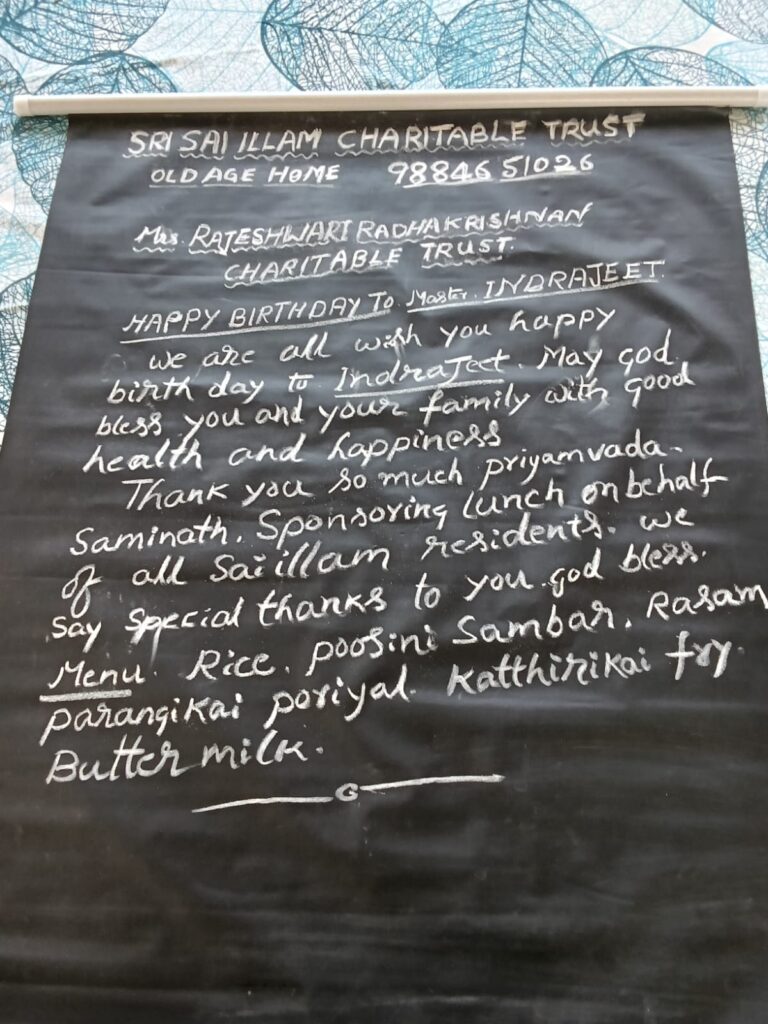 SRI SAI ILLAM CHARITABLE TRUST
OLD AGE HOME 98846 51026
Mrs. RAJESHWARI RADHAKRISHNAN
CHARITABLE TRUST.
HAPPY BIRTHDAY To Master. INDRAJEET.
we are all wish you happy
birth day to IndraJeet. May god
bless you and your family with good
health and happiness
Thank you so much priyamvada.
Saminath. Sponsoring lunch on behalf
of all Sai illam residents. we
say special thanks to you god bless.
Menu. Rice. poosini Sambar. Rasam
parangikai poriyal. Katthirikai fry.
Butter milk.